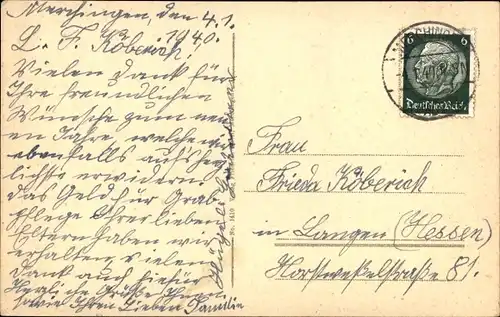 Merchingen, den 4.1.
1940.
L. F. Köberich!
Vielen Dank für
Ihre freundlichen
Wünsche zum neu
en Jahre, welche wir
ebenfalls aufs herz
lichste erwidern.
das Geld für Grab
pflege Ihrer lieben
Eltern haben wir
erhalten, vielen
Dank auch hiefür
Herzliche Grüße Ihnen
sowie Ihren Lieben Familie
6 6
Deutsches Reich
Frau
Frieda Köberich
in Langen (Hessen)
Horstwesselstraße 81.